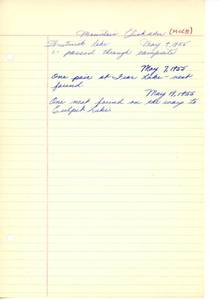 Mountain Chickadee (MOCH)
Lake May 4, 1955
passed through campsite
May 7, 1955
One pair at Lake - nest
found
May 19, 1955
One nest found on the way to
Lake